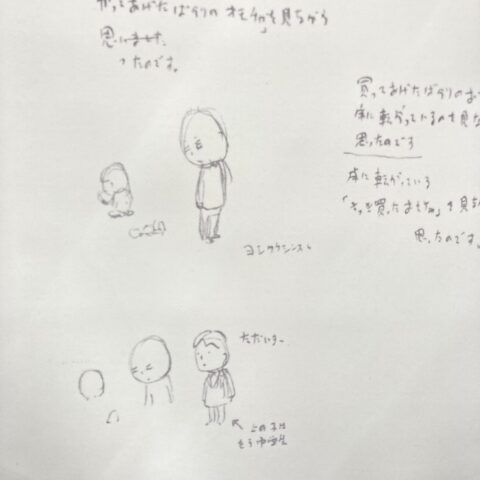 がってあげたばかりのオモチャを見ながら
思いました
ったのです。
買ってあげたばかりのお
床に転がっているのを見な
思ったのです
床に転がっている
「さっき買ったおもちゃ」を見な
思ったのです。
ただいまー
上の子は
もう中学生